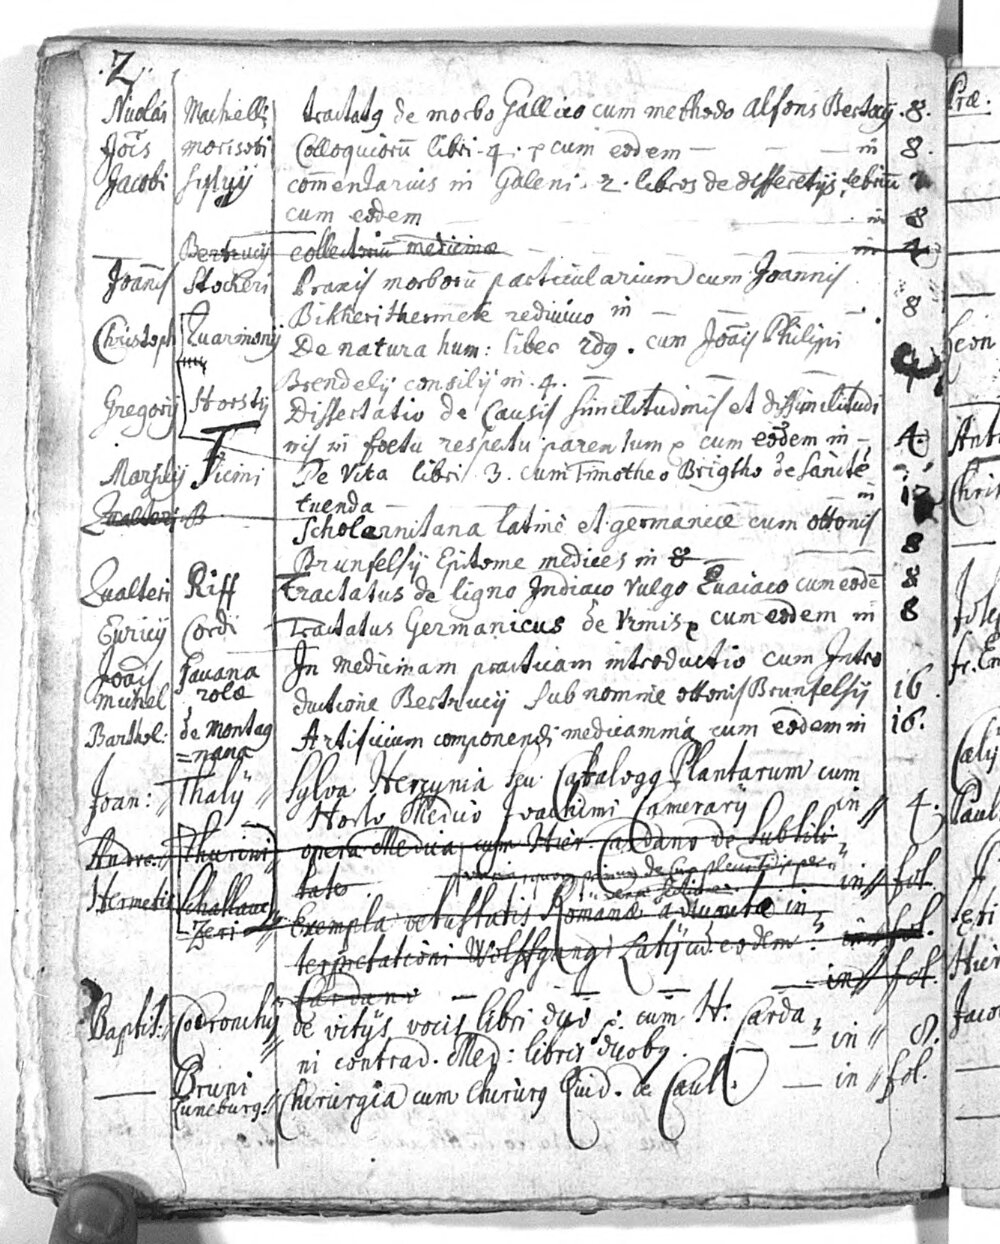 2
Nicolai Machelli tractatq de morbo Gallico cum methodo Alfons Bertocij. 8.
Jois morisoti Colloquiorū libri. 4. cum eodem — — — in 8.
Jacobi Sylvij commentarius in Galeni. 2. libros de differētijs febriū
cum eodem in 8
— Bertrucij collectoriū medicinæ in 4
Joannis Stockeri Praxis morborū particularium cum Joannis
Bikkeri thermete redivivo in — — — 8
Christoph Guarinonij De natura hum: liber cum Joāis Philipi
Brendelij consilij in. 4. — — 4
Gregorij Horstij Dissertatio de Causis similitudinis et dissimilitudi
nis in foetu respectu parentum cum eodem in — 4.
Marsilij Ficini De Vita libri. 3. cum Timotheo Brigtho de Sanite
tuenda in 12
Gualteri B Schola rnitana latine et germanice cum ottonis
Brunfelsij Epitome medices in 8 8
Gualteri Riff Tractatus de ligno Indiaco vulgo Guaiaco cum eodē 8
Euricij Cordi Tractatus Germanicus de Vrinis cum eodem in 8
Joāis Michael Savana rolæ In medicinam practicam introductio cum Intro
ductione Bertrucij sub nomine ottonis Brunfelsij 16
Barthol: de Montag =nana Artificium componendi medicammā cum eodem in 16.
Joan: Thalij Sylva Hercynia seu Catalogq Plantarum cum
Horto Medico Joachimi Camerarij in 4.
Andreæ Thurini opera Medica cum Hier. Cardano de Subtili
tate in fol.
Hermetis Schallauc =Zeri Exempla vetustatis Romanæ adiuncta in
terpretationi Wolffgangi Latij cū eodem in fol.
Cardano — — — in fol.
Baptist: Codronchij de vitijs vocis libri duo: cum H. Carda
ni contrad. Med: libris duobq. — in 8.
— Bruni Luneburg: Chirurgia cum Chirurg Guid. de Caul. — in fol.
Præ.
Leon
Anto
Chris
Jose
fr. En
Cæli
Paul
Hier
Jaco